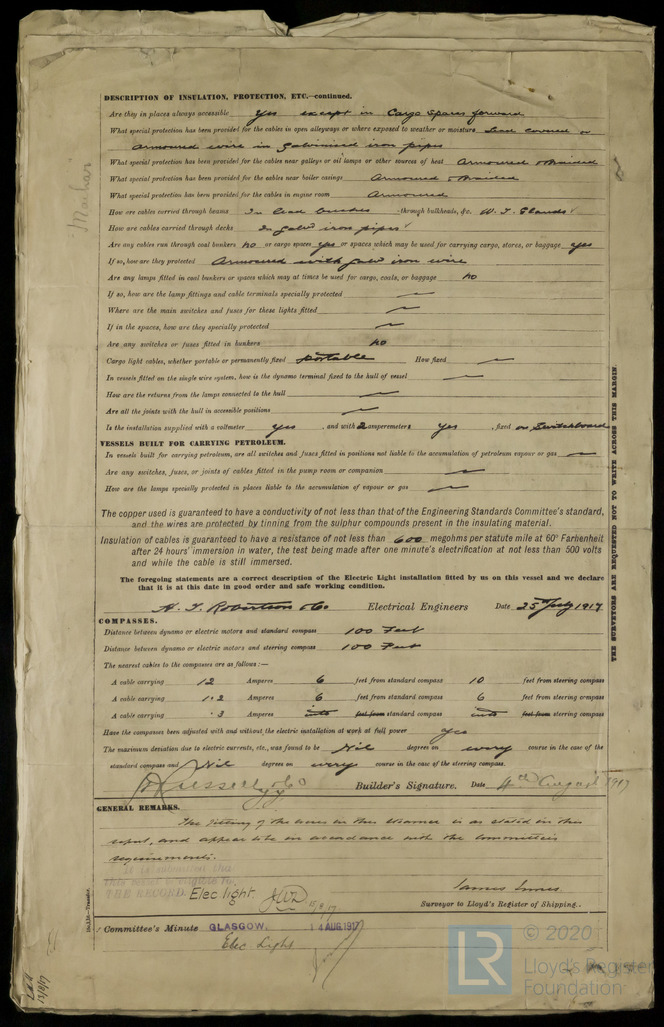 DESCRIPTION OF INSULATION, PROTECTION, ETC.—continued.
Are they in places always accessible Yes except in Cargo Spaces forward
What special protection has been provided for the cables in open alleyways or where exposed to weather or moisture Lead covered or
armoured wire in galvanised iron pipes
What special protection has been provided for the cables near galleys or oil lamps or other sources of heat Armoured & Braided
What special protection has been provided for the cables near boiler casings Armoured & Braided
What special protection has been provided for the cables in engine room Armoured
How are cables carried through beams In lead bushes through bulkheads, &c. W. T. Glands
How are cables carried through decks In galvd iron pipes
Are any cables run through coal bunkers no or cargo spaces yes or spaces which may be used for carrying cargo, stores, or baggage yes
If so, how are they protected Armoured with galvd iron wire
Are any lamps fitted in coal bunkers or spaces which may at times be used for cargo, coals, or baggage no
If so, how are the lamp fittings and cable terminals specially protected
Where are the main switches and fuses for these lights fitted
If in the spaces, how are they specially protected
Are any switches or fuses fitted in bunkers no
Cargo light cables, whether portable or permanently fixed portable How fixed
In vessels fitted on the single wire system, how is the dynamo terminal fixed to the hull of vessel
How are the returns from the lamps connected to the hull
Are all the joints with the hull in accessible positions
Is the installation supplied with a voltmeter yes , and with 2 amperemeters yes , fixed on Switchboard
VESSELS BUILT FOR CARRYING PETROLEUM.
In vessels built for carrying petroleum, are all switches and fuses fitted in positions not liable to the accumulation of petroleum vapour or gas
Are any switches, fuses, or joints of cables fitted in the pump room or companion
How are the lamps specially protected in places liable to the accumulation of vapour or gas
The copper used is guaranteed to have a conductivity of not less than that of the Engineering Standards Committee's standard,
and the wires are protected by tinning from the sulphur compounds present in the insulating material.
Insulation of cables is guaranteed to have a resistance of not less than 600 megohms per statute mile at 60° Farhenheit
after 24 hours' immersion in water, the test being made after one minute's electrification at not less than 500 volts
and while the cable is still immersed.
The foregoing statements are a correct description of the Electric Light installation fitted by us on this vessel and we declare
that it is at this date in good order and safe working condition.
Robertson & Co Electrical Engineers Date 25th July 1917
COMPASSES.
Distance between dynamo or electric motors and standard compass 100 Feet
Distance between dynamo or electric motors and steering compass 100 Feet
The nearest cables to the compasses are as follows:—
A cable carrying 12 Amperes 6 feet from standard compass 10 feet from steering compass
A cable carrying 1.2 Amperes 6 feet from standard compass 6 feet from steering compass
A cable carrying .3 Amperes into feet from standard compass into feet from steering compass
Have the compasses been adjusted with and without the electric installation at work at full power yes
The maximum deviation due to electric currents, etc., was found to be Nil degrees on every course in the case of the
standard compass and Nil degrees on every course in the case of the steering compass.
Russell & Co Builder's Signature. Date 4th August 1917
GENERAL REMARKS.
The fitting of the wires in this steamer is as stated in this
report, and appear to be in accordance with the Committee's
requirements.
THE RECORD. Elec light. JWD
James Innes
Surveyor to Lloyd's Register of Shipping.
Committee's Minute GLASGOW. 14 AUG. 1917
Elec Light
THE SURVEYORS ARE REQUESTED NOT TO WRITE ACROSS THIS MARGIN
LR
© 2020
Lloyd's Register
Foundation